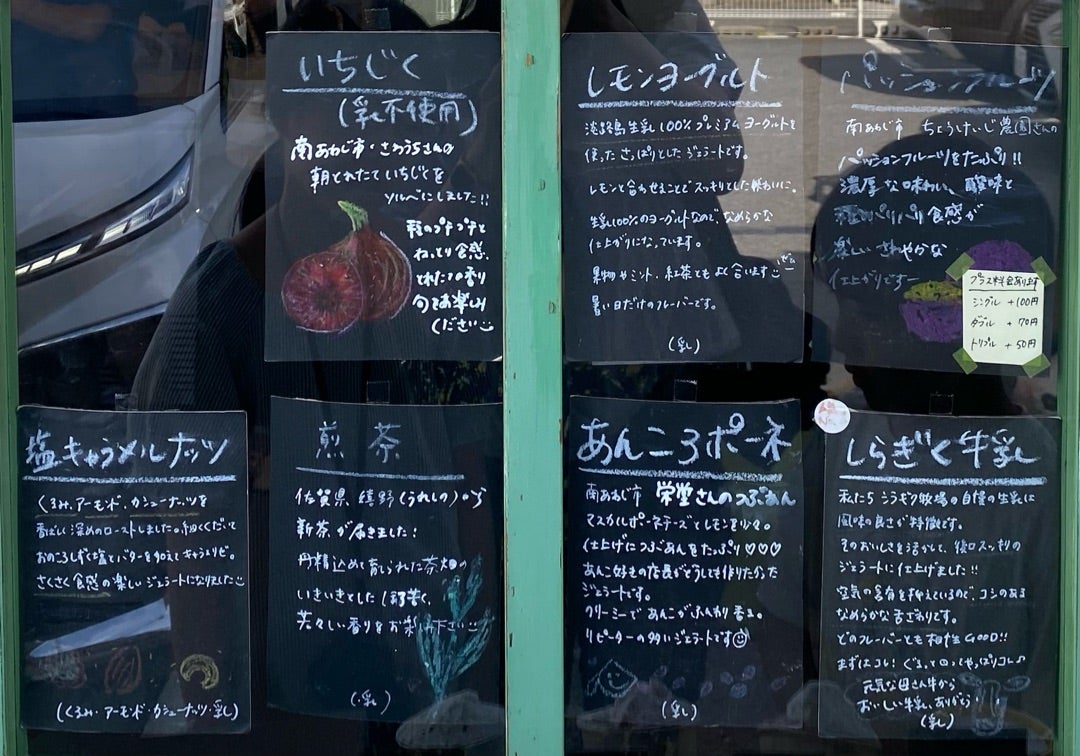 いちじく
(乳不使用)
南あわじ市・さわうらさんの
朝とれたて いちじくを
ソルベにしました!!
粒のプチプチと
ねっとり食感、
とれたての香り
旬をお楽しみ
ください
レモンヨーグルト
淡路島生乳100%プレミアムヨーグルトを
使った さっぱりとしたジェラートです。
レモンと合わせることで スッキリとした味わいに。
生乳100%のヨーグルトなので なめらかな
仕上がりになっています。
果物やミント、紅茶とも よく合います
暑い日だけのフレーバーです。
(乳)
パッションフルーツ
南あわじ市 ちょうけいじ農園さんの
パッションフルーツをたっぷり!!
濃厚な味わい、酸味と
パリパリ食感が
楽しい さわやかな
仕上がりですー
プラス料金あります
シングル +100円
ダブル +70円
トリプル +50円
塩キャラメルナッツ
くるみ、アーモンド、カシューナッツを
香ばしく深めのローストしました。細くくだいて
おのころしずく塩とバターを加えてキャラメリゼ。
さくさく食感の楽しい ジェラートになりました
(くるみ・アーモンド・カシューナッツ・乳)
煎茶
佐賀県 嬉野(うれしの)から
新茶が届きました!
丹精込めて育られた茶畑の
いきいきとした ほろ苦く、
若々しい香りをお楽しみ下さい
(・乳)
あんころポーネ
南あわじ市 栄堂さんのつぶあん
マスカルポーネチーズとレモンを少々。
仕上げにつぶあんをたっぷり♡♡♡
あんこ好きの店長がどうしても作りたかった
ジェラートです。
クリーミーであんこがふんわり香る。
リピーターの多いジェラートです
(乳)
しらぎく牛乳
私たち シラギク牧場の自慢の生乳は
風味の良さが特徴です。
そのおいしさを活かして、後口スッキリの
ジェラートに仕上げました!!
空気の含有を抑えているので、コシのある
なめらかな舌ざわりです。
どのフレーバーとも相性GOOD!!
まずはコレ! ぐるっと回ってやっぱりコレ♪
元気な母さん牛から
おいしい牛乳、ありがとう
(乳)